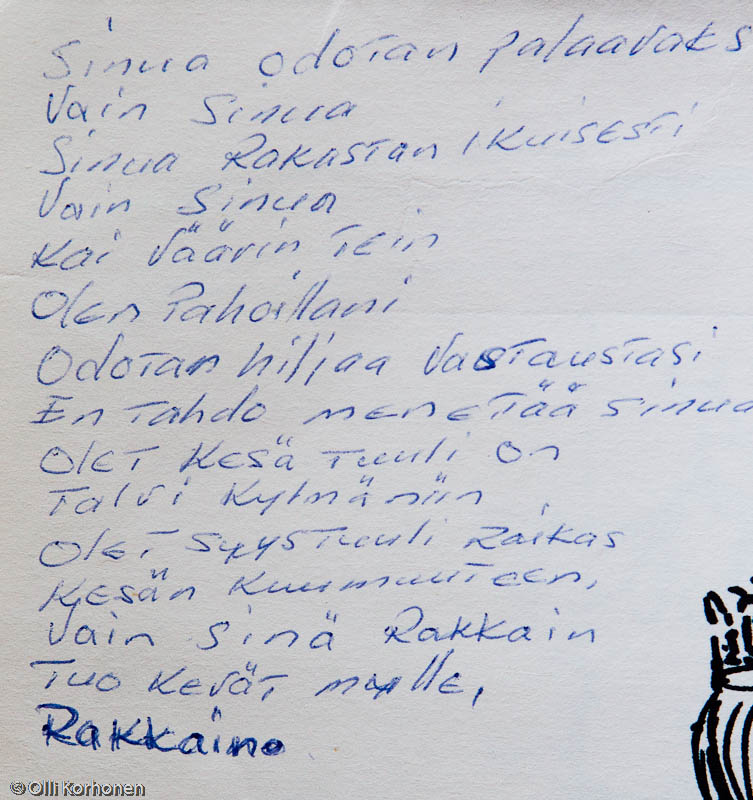 Sinua odotan palaavaks
Vain Sinua
Sinua Rakastan ikuisesti
Vain Sinua
Kai Väärin Tein
Olen Pahoillani
Odotan hiljaa Vastaustasi
En Tahdo menetää sinua
Olet Kesä Tuuli on
Talvi Kylmäniin
Olet Syystuuli Raikas
Kesän Kuumuuteen,
Vain Sinä Rakkain
Tuo Kevät mulle,
Rakkain.
© Olli Korhonen